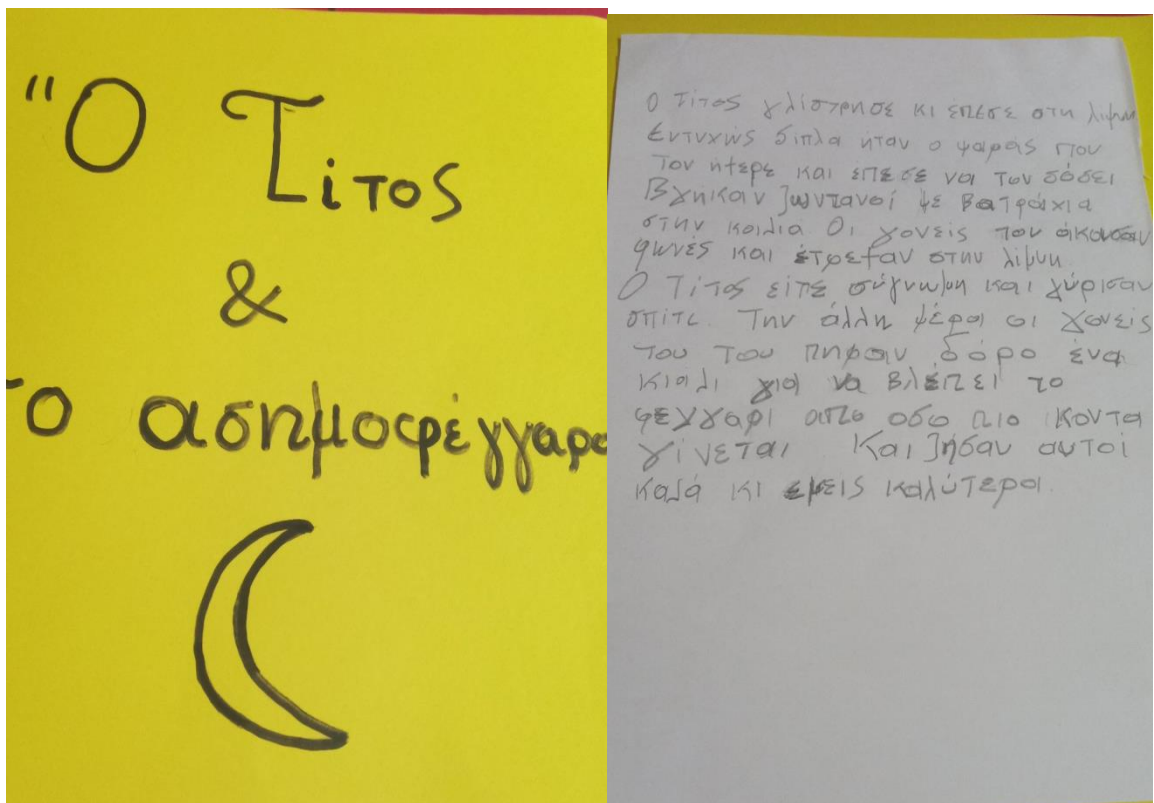 "Ο Τίτος
&
το ασημοφέγγαρο
Ο Τίτος γλίστρησε κι έπεσε στη λίμνη
Εντυχώς διπλα ήταν ο ψαράς που
τον ήξερε και έπεσε να τον σόσει
Βγήκαν ζωντανοί με βατράχια
στην κοιλια Οι γονείς του άκουσαν
φωνές και έτρεξαν στην λίμνη
Ο Τίτος είπε σύγνωμη και γύρισαν
σπίτι. Την άλλη μέρα οι γονείς
του του πήραν δόρο ένα
κιαλι για να βλέπει το
φεγγαρι απο οσο πιο κοντα
γίνεται Και ζήσαν αυτοί
καλά κι εμεις καλύτερα.